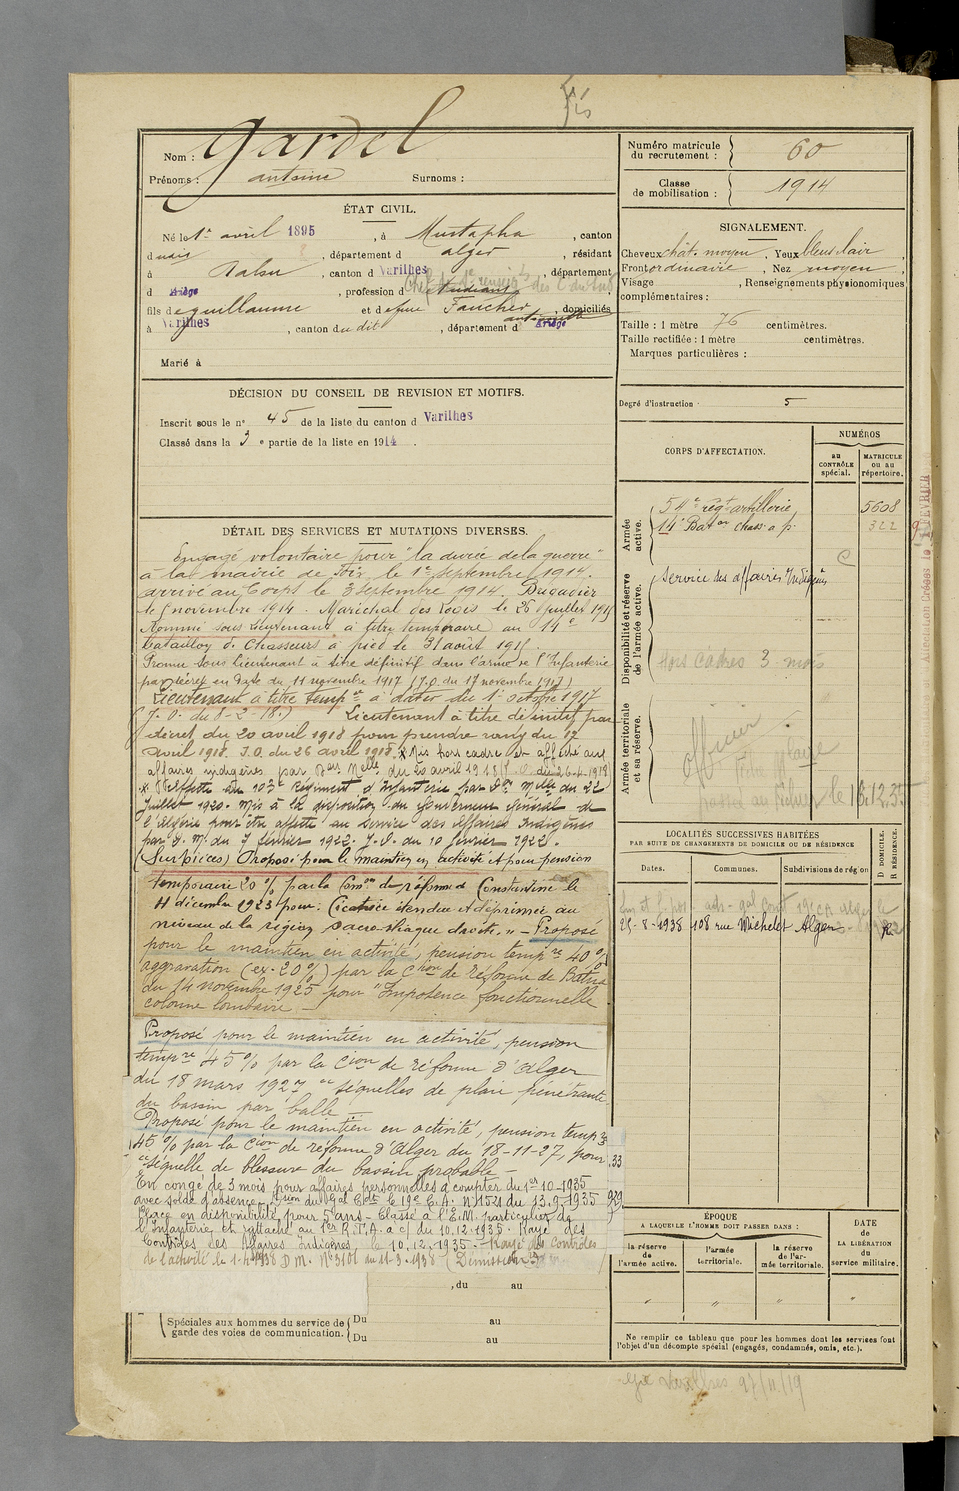 Nom : Gardel
Prénoms : antoine Surnoms :
ÉTAT CIVIL.
Né le 1er avril 1895, à Mustapha, canton
dudit, département d alger, résidant
à Dalou, canton d Varilhes, département
d Ariège, profession d étudiant
fils de guillaume et de feue Faucher antoinette, domiciliés
à Varilhes, canton dudit, département d Ariège
Marié à
DÉCISION DU CONSEIL DE REVISION ET MOTIFS.
Inscrit sous le n° 45 de la liste du canton d Varilhes
Classé dans la 3e partie de la liste en 1914.
DÉTAIL DES SERVICES ET MUTATIONS DIVERSES.
Engagé volontaire pour "la durée de la guerre"
à la mairie de Foix le 1er septembre 1914.
arrivé au Corps le 3 septembre 1914. Brigadier
le 5 novembre 1914. Maréchal des Logis le 26 juillet 1915
Nommé sous lieutenant à titre temporaire au 14e
bataillon de Chasseurs à pied le 31 août 1915
Promu sous lieutenant à titre définitif dans l'arme de l'Infanterie
par décret en date du 11 novembre 1917 (J.O. du 17 novembre 1917)
Lieutenant à titre tempre à dater du 1er octobre 1917
(J.O. du 8-2-18.) Lieutenant à titre définitif par
décret du 20 avril 1918 pour prendre rang du 17
avril 1918. J.O. du 26 avril 1918. * Mis hors cadre et affecté aux
affaires indigènes par Don Melle du 20 avril 1918 J.O. du 26-4-1918
* Réaffecté au 103e Régiment d'Infanterie par Dn Melle du 22
Juillet 1920. Mis à la disposition du Gouverneur général de
l'Algérie pour être affecté au service des affaires Indigènes
par D.M. du 7 février 1922. J.O. du 10 février 1922.
(Sur pièces) Proposé pour le maintien en activité et pour pension
temporaire 20% par la Comon de réforme d Constantine le
11 décembre 1923 pour: Cicatrice étendue et déprimée au
niveau de la région sacro-iliaque droite. " - Proposé
pour le maintien en activité, pension tempre 40%
aggravation (ex-20%) par la Cion de réforme de Batna
du 14 novembre 1925 pour "Impotence fonctionnelle
colonne lombaire -
Proposé pour le maintien en activité, pension
tempre 45% par la Cion de réforme d'Alger
du 18 mars 1927 "séquelles de plaie pénétrante
du bassin par balle -
Proposé pour le maintien en activité, pension tempre
45% par la Cion de réforme d'Alger du 18-11-27, pour
"séquelle de blessure du bassin probable -
En congé de 3 mois pour affaires personnelles à compter du 1er 10-1935
avec solde d'absence - Dion du Gal Cdt le 19e C.A. N°1521 du 13.9.1935
Placé en disponibilité pour 5 ans - Classé à l'E.M. particulier de
l'Infanterie et rattaché au 1er R.T.A. à c/ du 10.12.1935. Rayé des
Contrôles des Affaires Indigènes le 10.12.1935. - Rayé des contrôles
de l'activité le 1-4-1938 D.M. N°3101 du 11-3-1938 (Démission)
, du au
Spéciales aux hommes du service de garde des voies de communication. Du au
Du au
Numéro matricule du recrutement : 60
Classe de mobilisation : 1914
SIGNALEMENT.
Cheveux chât. moyen, Yeux bleus clair
Front ordinaire, Nez moyen,
Visage , Renseignements physionomiques
complémentaires :
Taille : 1 mètre 76 centimètres.
Taille rectifiée : 1 mètre centimètres.
Marques particulières :
Degré d'instruction : 5
CORPS D'AFFECTATION.
NUMÉROS
au CONTRÔLE spécial.
MATRICULE ou au répertoire.
Armée active.
54e régt artillerie 5608
14e Baton chass. à p. 322
Disponibilité et réserve de l'armée active.
Service des affaires Indigènes
Hors cadres 3 mois
Armée territoriale et sa réserve.
officier
passé au fichier le 13.12.35
LOCALITÉS SUCCESSIVES HABITÉES
PAR SUITE DE CHANGEMENTS DE DOMICILE OU DE RÉSIDENCE
D DOMICILE. R RÉSIDENCE.
Dates. Communes. Subdivisions de région
25-8-1938 108 rue Michelet Alger R
ÉPOQUE
A LAQUELLE L'HOMME DOIT PASSER DANS :
la réserve de l'armée active.
l'armée territoriale.
la réserve de l'armée territoriale.
DATE de LA LIBÉRATION du service militaire.
" " " "
Ne remplir ce tableau que pour les hommes dont les services font
l'objet d'un décompte spécial (engagés, condamnés, omis, etc.).